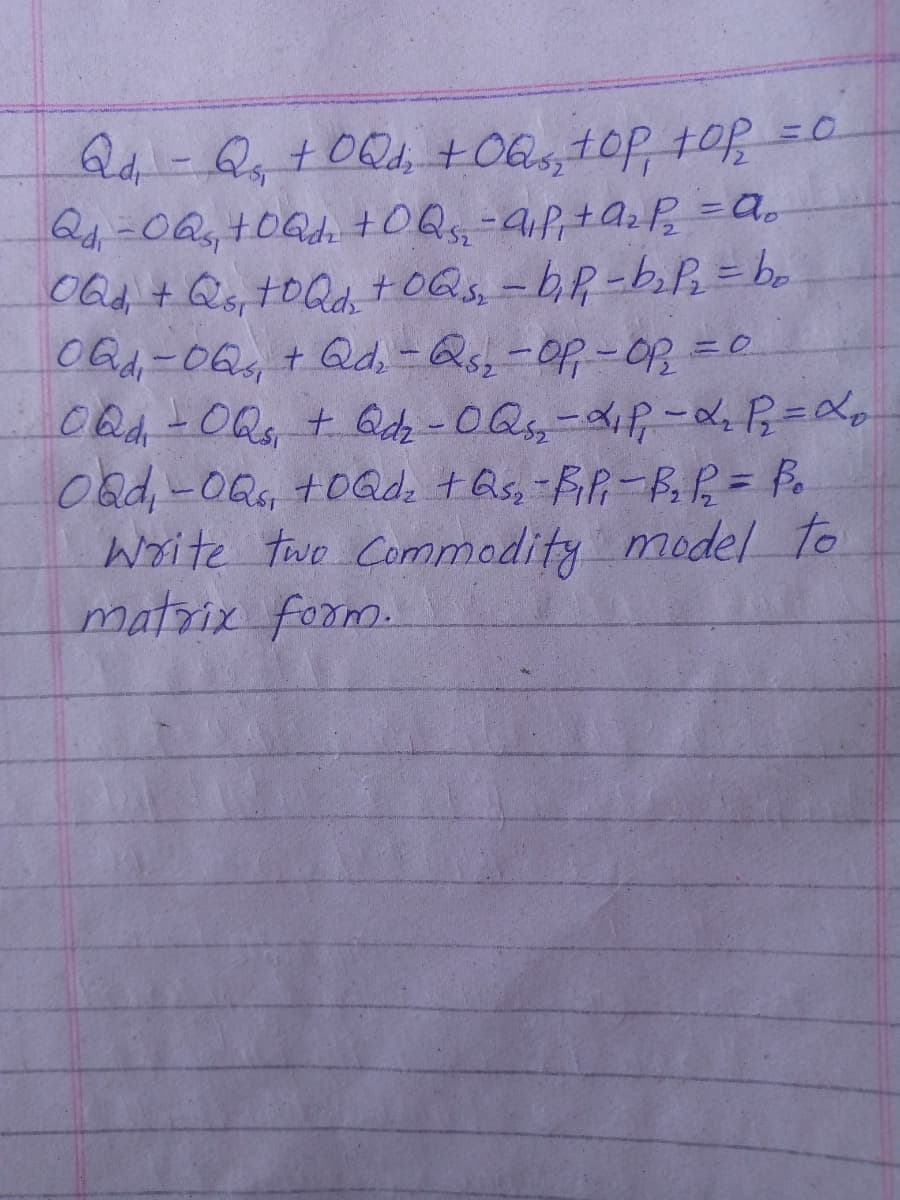 Qd₁ - Qs₁ + 0Qd₂ + 0Qs₂ + 0P₁ + 0P₂ = 0
Qd₁ - 0Qs₁ + 0Qd₂ + 0Qs₂ - a₁P₁ + a₂P₂ = a₀
0Qd₁ + Qs₁ + 0Qd₂ + 0Qs₂ - b₁P₁ - b₂P₂ = b₀
0Qd₁ - 0Qs₁ + Qd₂ - Qs₂ - 0P₁ - 0P₂ = 0
0Qd₁ - 0Qs₁ + Qd₂ - 0Qs₂ - α₁P₁ - α₂P₂ = α₀
0Qd₁ - 0Qs₁ + 0Qd₂ + Qs₂ - β₁P₁ - β₂P₂ = β₀
Write two Commodity model to
matrix form.